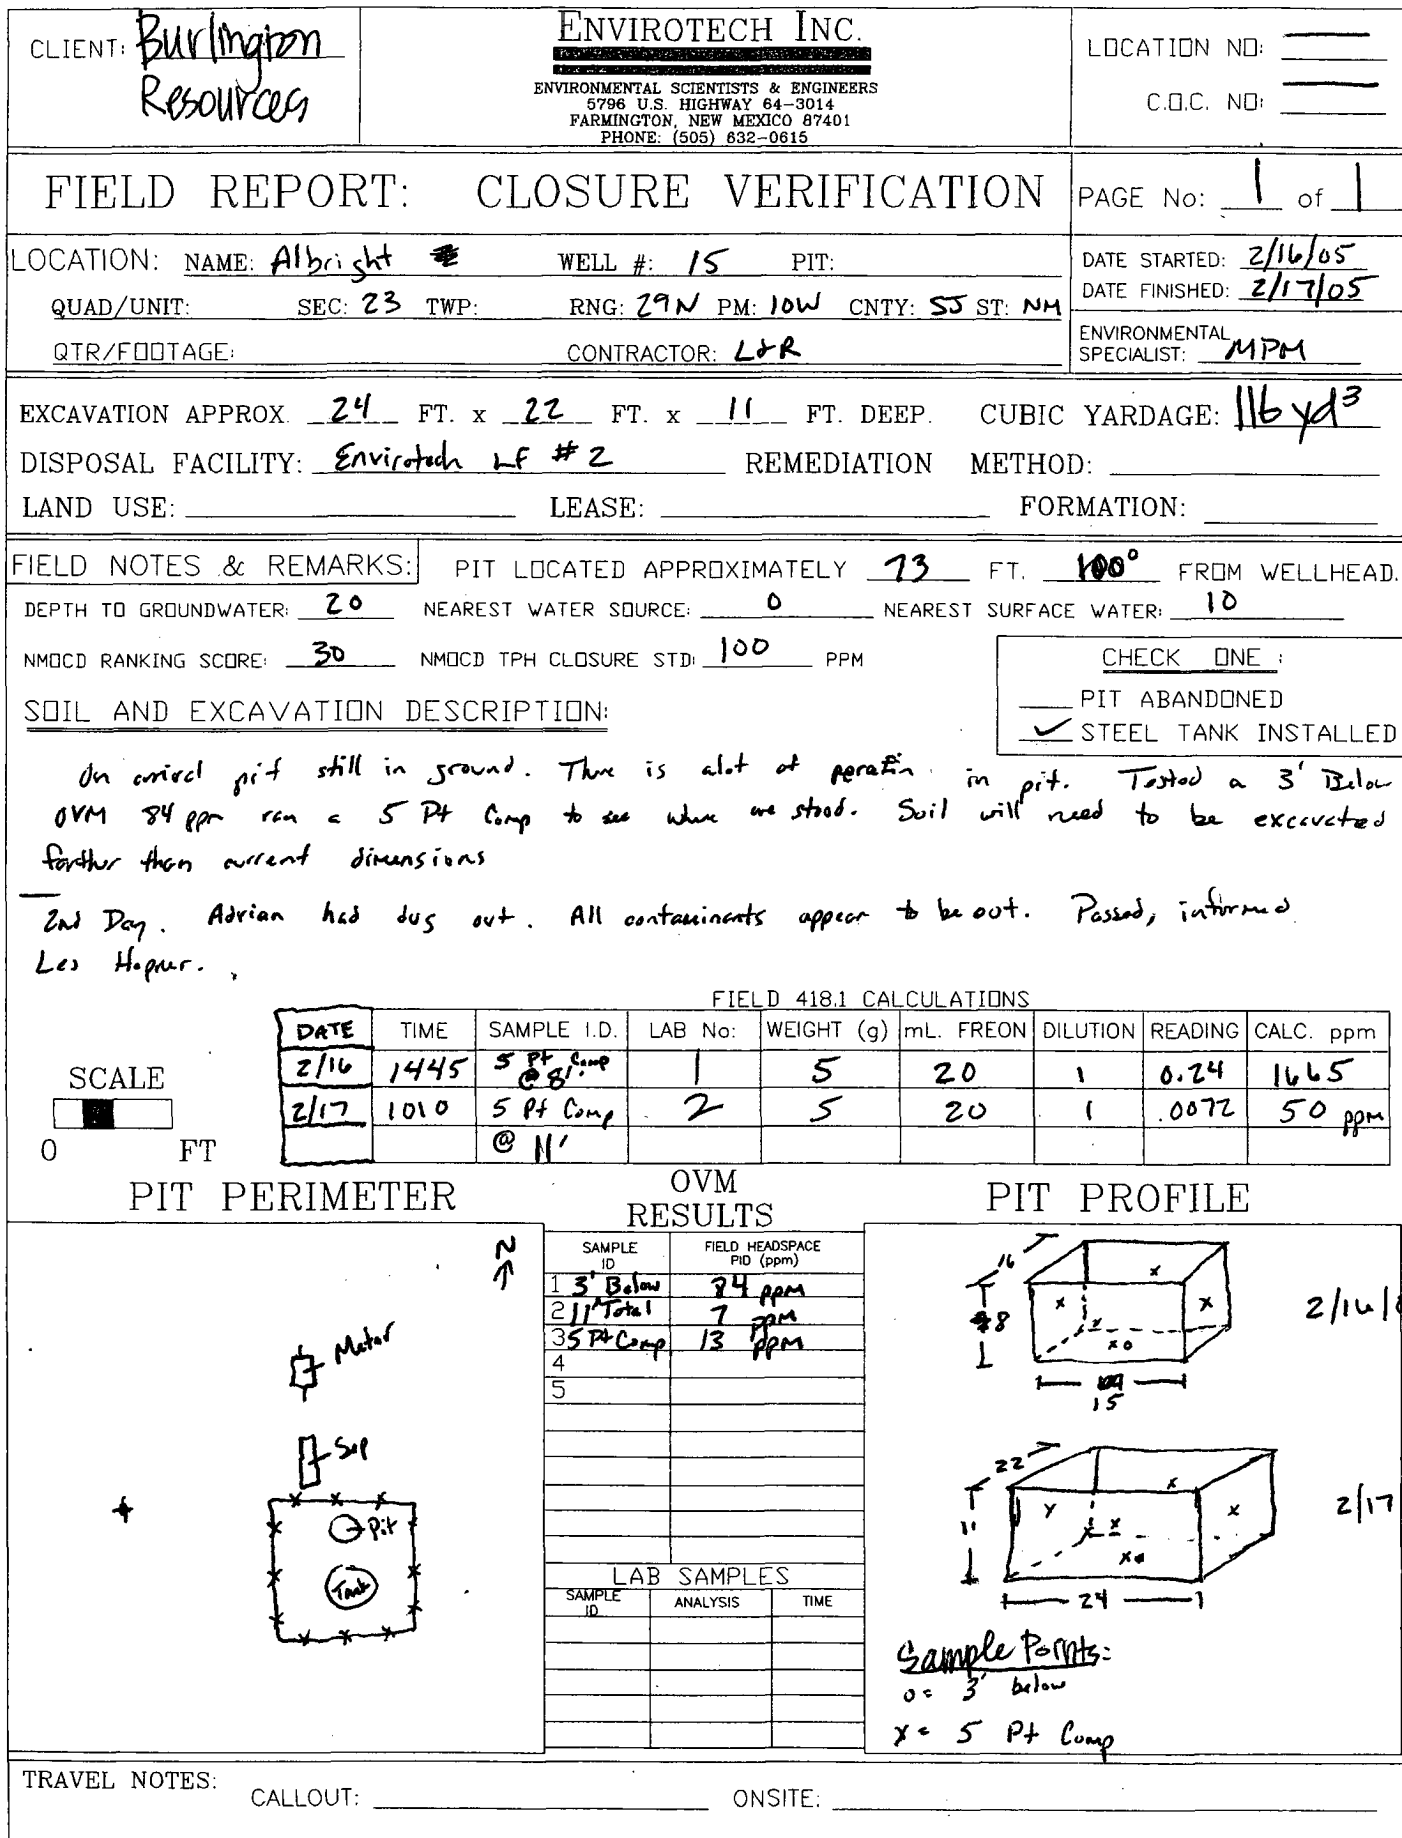 CLIENT: Burlington
Resources
ENVIROTECH INC.
ENVIRONMENTAL SCIENTISTS & ENGINEERS
5796 U.S. HIGHWAY 64-3014
FARMINGTON, NEW MEXICO 87401
PHONE: (505) 632-0615
LOCATION NO:
C.O.C. NO:
FIELD REPORT: CLOSURE VERIFICATION
PAGE No: 1 of 1
LOCATION: NAME: Albright WELL #: 15 PIT:
QUAD/UNIT: SEC: 23 TWP: RNG: 29N PM: 10W CNTY: SJ ST: NM
QTR/FOOTAGE: CONTRACTOR: L&R
DATE STARTED: 2/16/05
DATE FINISHED: 2/17/05
ENVIRONMENTAL
SPECIALIST: MPM
EXCAVATION APPROX. 24 FT. x 22 FT. x 11 FT. DEEP. CUBIC YARDAGE: 116 yd3
DISPOSAL FACILITY: Envirotech LF #2 REMEDIATION METHOD:
LAND USE: LEASE: FORMATION:
FIELD NOTES & REMARKS: PIT LOCATED APPROXIMATELY 73 FT. 100° FROM WELLHEAD.
DEPTH TO GROUNDWATER: 20 NEAREST WATER SOURCE: 0 NEAREST SURFACE WATER: 10
NMOCD RANKING SCORE: 30 NMOCD TPH CLOSURE STD: 100 PPM
CHECK ONE :
PIT ABANDONED
✓ STEEL TANK INSTALLED
SOIL AND EXCAVATION DESCRIPTION:
On arrival pit still in ground. There is alot of perafin in pit. Tested a 3' Below
OVM 84 ppm ran a 5 Pt Comp to see where we stood. Soil will need to be excavated
farther than current dimensions
2nd Day. Adrian had dug out. All contaminants appear to be out. Passed, informed
Les
FIELD 418.1 CALCULATIONS
DATE TIME SAMPLE I.D. LAB No: WEIGHT (g) mL. FREON DILUTION READING CALC. ppm
2/16 1445 5 Pt Comp @ 8' 1 5 20 1 0.24 1665
2/17 1010 5 Pt Comp 2 5 20 1 .0072 50 ppm
@ 11'
SCALE
0 FT
PIT PERIMETER
N
Meter
Sep
Pit
Tank
OVM
RESULTS
SAMPLE ID FIELD HEADSPACE PID (ppm)
1 3' Below 84 ppm
2 11' Total 7 ppm
3 5 Pt Comp 13 ppm
4
5
LAB SAMPLES
SAMPLE ID ANALYSIS TIME
PIT PROFILE
16
8
15
2/16/0
22
11
24
2/17
Sample Points:
o = 3' below
x = 5 Pt Comp
TRAVEL NOTES: CALLOUT: ONSITE: